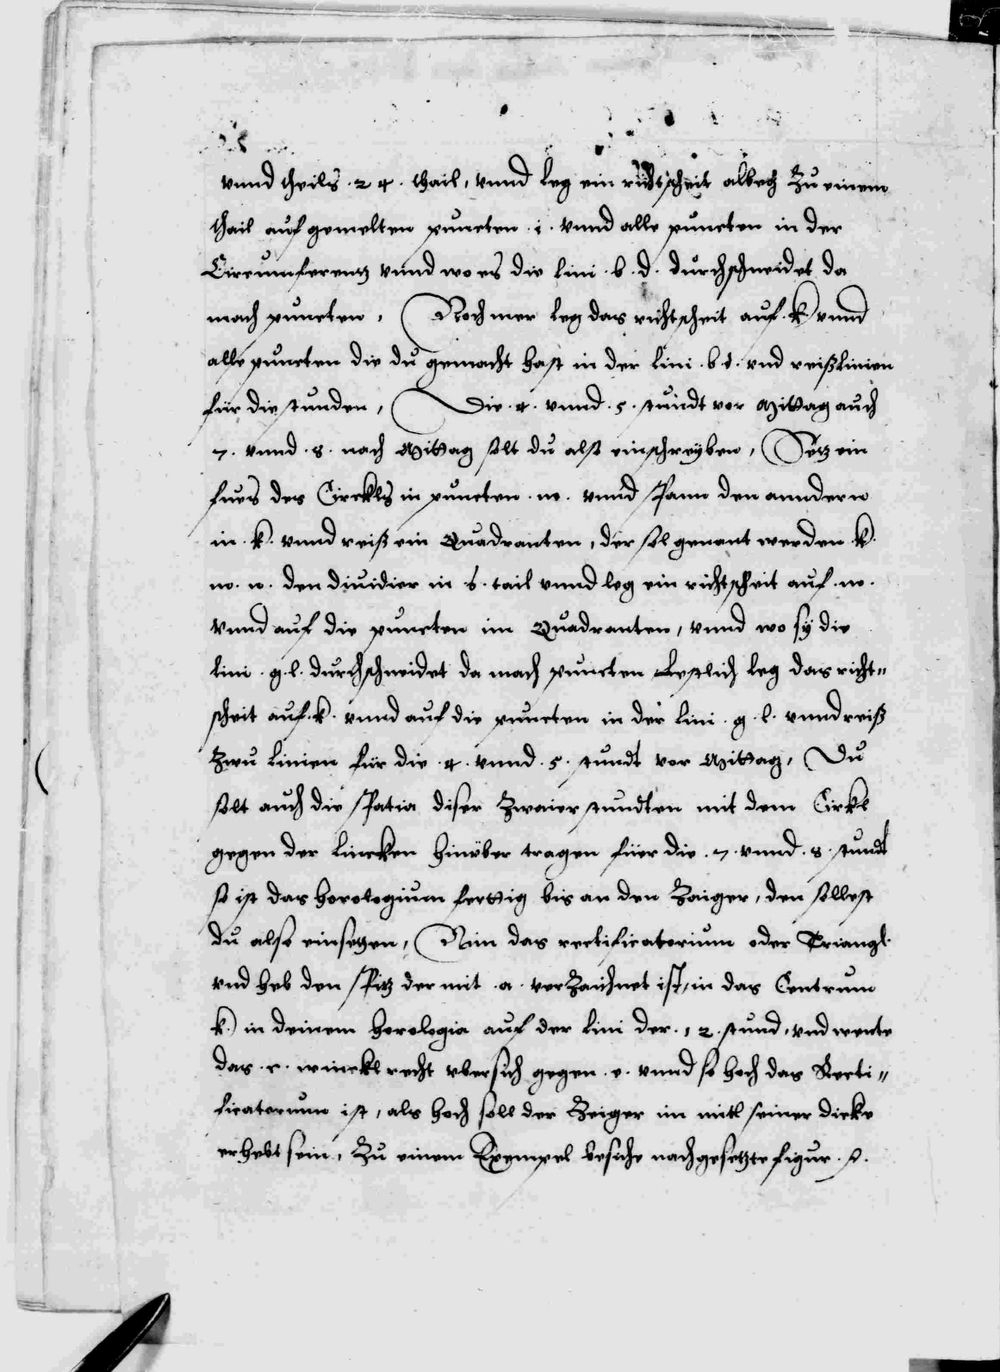 vnnd theils .24. thail, vnnd leg ein richtscheit albeg zu einem
thail auf gemelten puncten .i. vnnd alle puncten in der
Circumferentz vnnd wo es die lini .b.d. durchschneidet da
mach puncten, Noch mer leg das richtscheit auf .k. vnnd
alle puncten die du gemacht hast in der lini .b d. vnd reiß linien
für die stunden, Die .4. vnnd .5. stundt vor Mittag auch
7. vnnd .8. nach Mittag solt du also einschreyben, Setz ein
fues des Circkls in puncten .m. vnnd spann den anndern
in .k. vnnd reiß ein Quadranten, der sol genant werden .k.
m. n. den diuidier in 6. tail vnnd leg ein richtscheit auf .m.
vnnd auf die puncten im Quadranten, vnnd wo sy die
lini .g.l. durchschneidet da mach puncten Letzlich leg das richt=
scheit auf .k. vnnd auf die puncten in der lini .g.l. vnnd reiß
zwu linien für die .4. vnnd .5. stundt vor Mittag, Du
solt auch die spatia diser zwaier stundten mit dem Circkl
gegen der lincken hinüber tragen füer die .7. vnnd .8. stundt
so ist das horologium fertig bis an den Zaiger, den sollest
du also einsetzen, Nim das rectificatorium oder Triangl
vnd heb den spitz der mit .a. verzaichnet ist, in das Centrum
k. in deinem horologio auf der lini der .12. stund, vnd wente
das .c. winckl recht vbersich gegen .e. vnnd so hoch das Recti=
ficatorium ist, als hoch soll der Zeiger im mitl seiner dicke
erhebt sein, Zu einem Exempel besiche nachgesetzte figur.